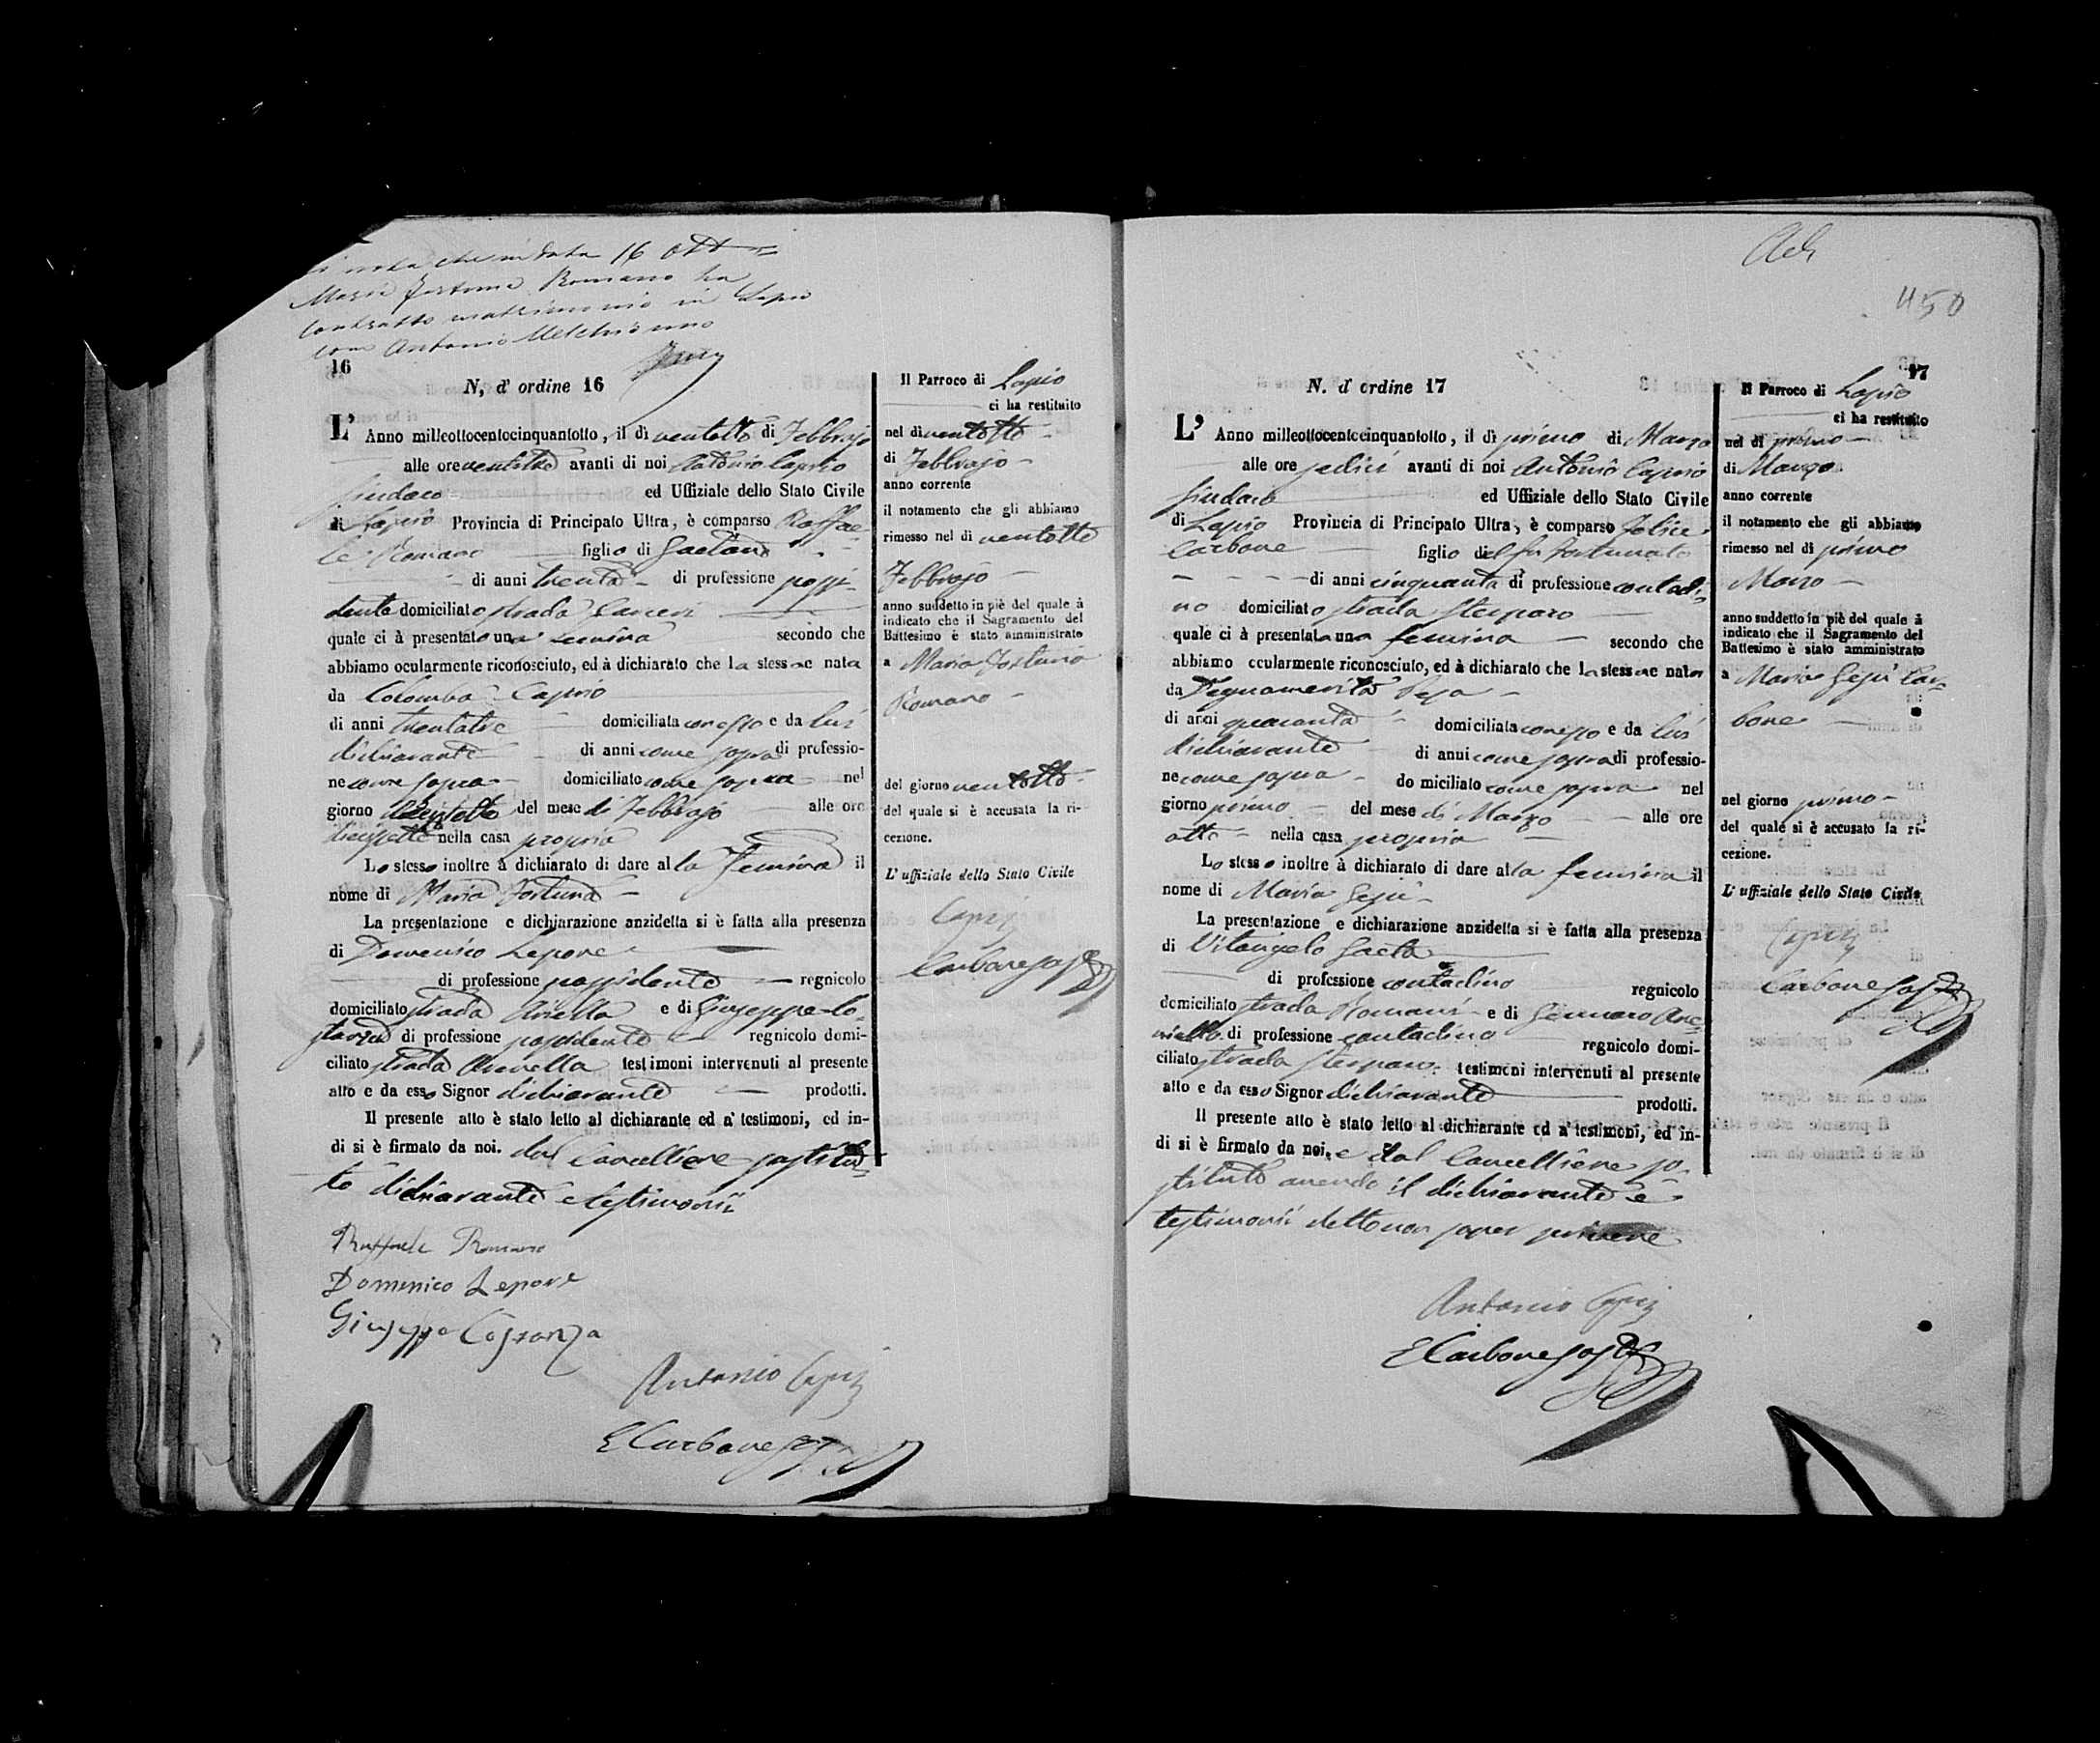 nota che in data 16 Ott
Maria Fortuna Romano ha
contratto matrimonio in Lapio
con Antonio
16
N, d' ordine 16
L' Anno milleottocentocinquantotto, il dì ventotto di Febbrajo
alle ore ventitre avanti di noi Antonio Caprio
Sindaco ed Uffiziale dello Stato Civile
di Lapio Provincia di Principato Ultra, è comparso Raffae-
le Romano figlio di Gaetano
di anni trenta di professione possi-
dente domiciliato strada Carceri
quale ci à presentato una femina secondo che
abbiamo ocularmente riconosciuto, ed à dichiarato che la stessa è nata
da Colomba Caprio
di anni domiciliata con esso e da lui
dichiarante di anni come sopra di professio-
ne come sopra domiciliato come sopra nel
giorno ventotto del mese di Febbrajo alle ore
diecissette nella casa propria
Lo stesso inoltre à dichiarato di dare alla femina il
nome di Maria Fortuna
La presentazione e dichiarazione anzidetta si è fatta alla presenza
di Domenico Lepore
di professione possidente regnicolo
domiciliato strada e di Giuseppe Co-
stanza di professione possidente regnicolo domi-
ciliato strada testimoni intervenuti al presente
atto e da esso Signor dichiarante prodotti.
Il presente atto è stato letto al dichiarante ed a' testimoni, ed in-
di si è firmato da noi. dal Cancelliere sostitu-
to dichiarante e testimonii
Raffaele Romano
Domenico Lepore
Giuseppe Costanza
Antonio Caprio
E Carbone Sost
Il Parroco di Lapio
ci ha restituito
nel dì ventotto
di Febbrajo
anno corrente
il notamento che gli abbiamo
rimesso nel dì ventotto
Febbrajo
anno suddetto in piè del quale à
indicato che il Sagramento del
Battesimo è stato amministrato
a Maria Fortuna
Romano
del giorno ventotto
del quale si è accusata la ri-
cezione.
L' uffiziale dello Stato Civile
Caprio
Carbone Sost
450
17
N. d' ordine 17
L' Anno milleottocentocinquantotto, il dì primo di Marzo
alle ore sedici avanti di noi Antonio Caprio
Sindaco ed Uffiziale dello Stato Civile
di Lapio Provincia di Principato Ultra, è comparso Felice
Carbone figlio del fu Fortunato
di anni cinquanta di professione contadi-
no domiciliato strada Sterparo
quale ci à presentata una femina secondo che
abbiamo ocularmente riconosciuto, ed à dichiarato che la stessa è nata
da Degnamerita
di anni quaranta domiciliata con esso e da lui
dichiarante di anni come sopra di professio-
ne come sopra domiciliato come sopra nel
giorno primo del mese di Marzo alle ore
otto nella casa propria
Lo stesso inoltre à dichiarato di dare alla femina il
nome di Maria Gesù
La presentazione e dichiarazione anzidetta si è fatta alla presenza
di Vitangelo Gaeta
di professione contadino regnicolo
domiciliato strada Romani e di Gennaro
di professione contadino regnicolo domi-
ciliato strada Sterparo testimoni intervenuti al presente
atto e da esso Signor dichiarante prodotti.
Il presente atto è stato letto al dichiarante ed a' testimoni, ed in-
di si è firmato da noi. e dal Cancelliere so-
stituto avendo il dichiarante e
testimonii detto non saper scrivere
Antonio Caprio
E Carbone Sost
Il Parroco di Lapio
ci ha restituito
nel dì primo
di Marzo
anno corrente
il notamento che gli abbiamo
rimesso nel dì primo
Marzo
anno suddetto in piè del quale à
indicato che il Sagramento del
Battesimo è stato amministrato
a Maria Gesù Car-
bone
nel giorno primo
del quale si è accusato la ri-
cezione.
L' uffiziale dello Stato Civile
Caprio
Carbone Sost